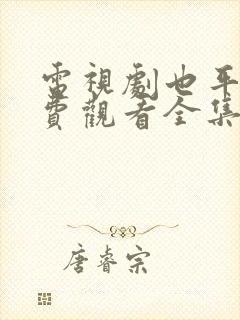 電視劇也平
費觀看全集
唐睿宗